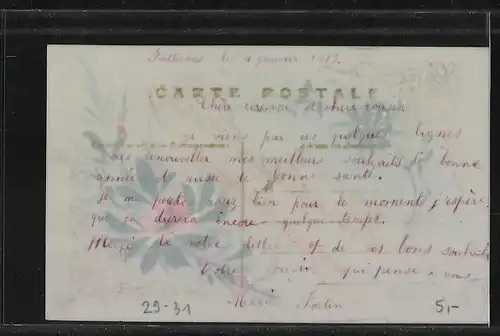 le 4 janvier 1913.
CARTE POSTALE
Cher cousin et chère cousine
je viens par ces quelques lignes
vous renouveller mes meilleurs souhaits de bonne
année et aussi de bonne santé.
je me porte assez bien pour le moment j'espère
que ça durera encore quelque temps.
Merci de votre lettre et de vos bons souhaits
Votre cousin qui pense à vous
29-31
5,-